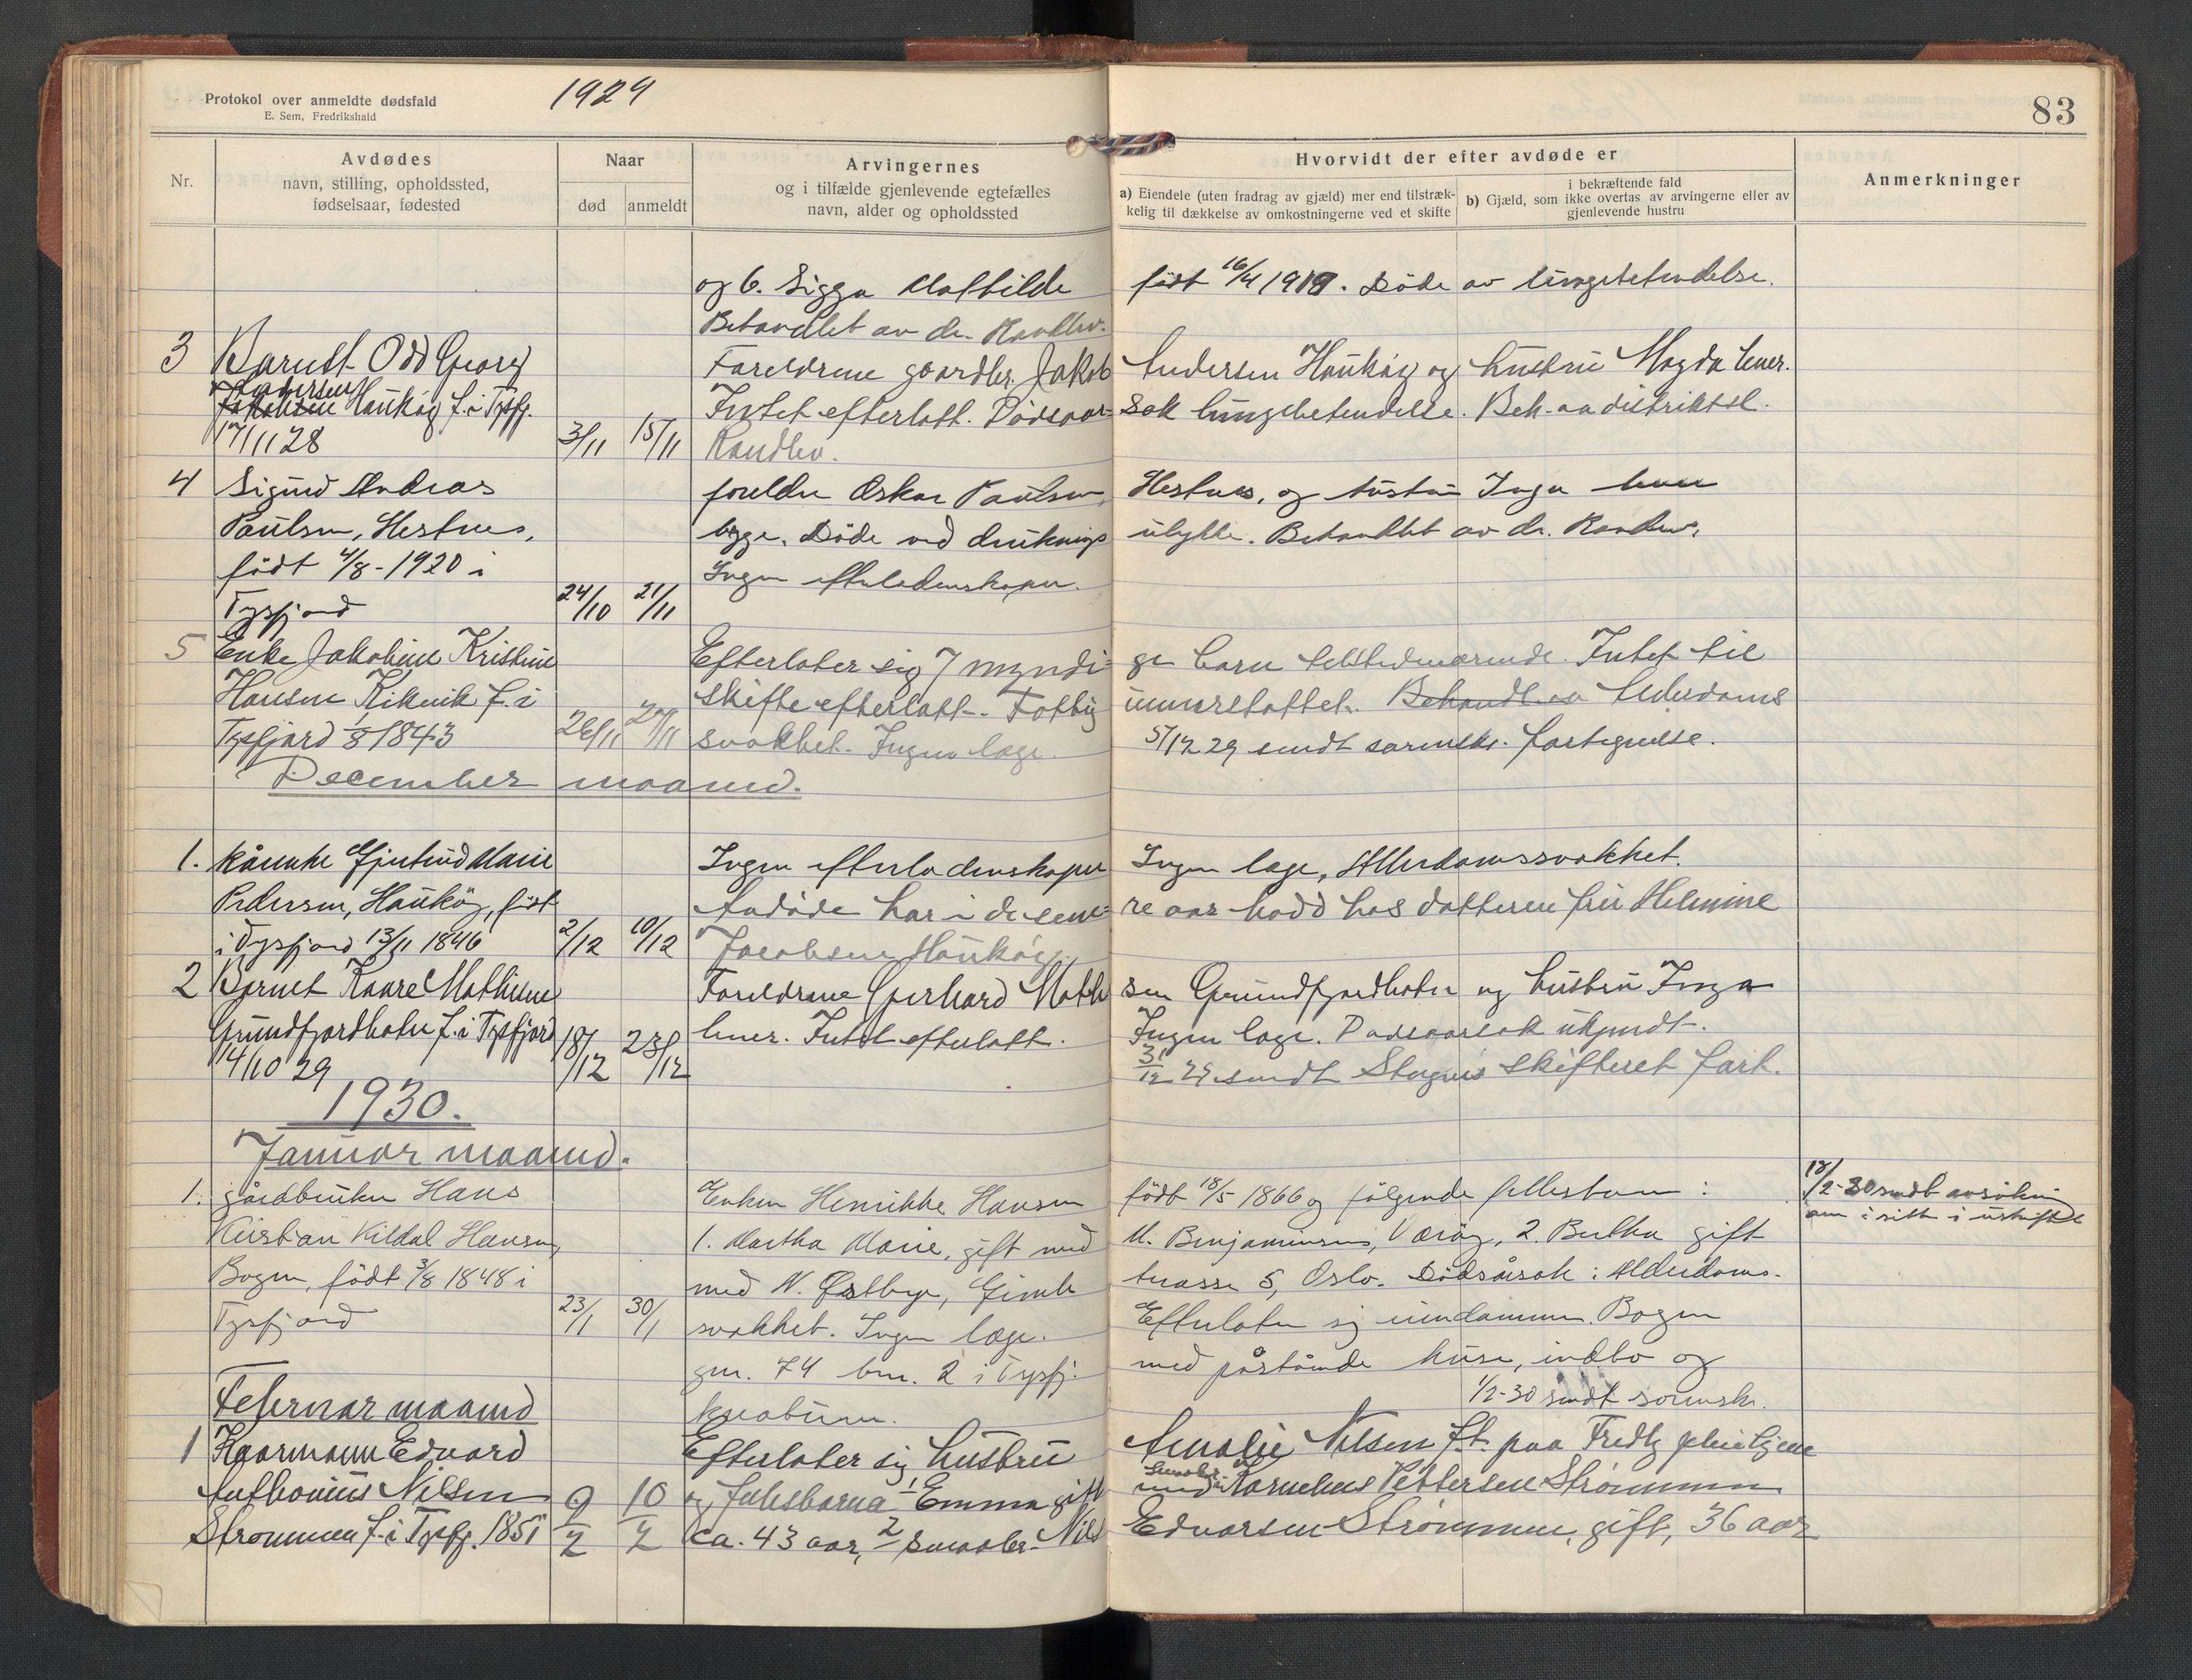 Protokol over anmeldte dødsfald
E. Sem, Fredrikshald
1929
83
Nr.
Avdødes
navn, stilling, opholdssted,
fødselsaar, fødested
Naar
død
anmeldt
Arvingernes
og i tilfælde gjenlevende egtefælles
navn, alder og opholdssted
Hvorvidt der efter avdøde er
a) Eiendele (uten fradrag av gjæld) mer end tilstræk-
kelig til dækkelse av omkostningerne ved et skifte
i bekræftende fald
b) Gjæld, som ikke overtas av arvingerne eller av
gjenlevende hustru
Anmerkninger
og 6. Sigga Mathilde født 16/4 1919. Døde av lungebetendelse.
Behandlet av dr. Randlev.
3 Barnet Odd Georg Foreldrene gaardbr. Jakob Andersen Haukøy og hustru Magda
Andersen
Jakobsen Haukøy f. i Tysfj. Intet efterlatt. Dødsaar- sak lungebetendelse. Beh. av distriktsl.
17/11 28 3/11 15/11 Randlev.
4 Sigurd Andreas foreldre Oskar Paulsen, Hestnes, og hustru Inga
Paulsen, Hestnes, begge. Døde ved druknings ulykke. Behandlet av dr. Randlev.
født 4/8-1920 i Ingen efterladenskaper.
Tysfjord 24/10 21/11
5 Enke Jakobine Kristine Efterlater sig 7 myndi- ge barn tilstedeværende. Intet til
Hansen Kikvik f. i skifte efterlatt. Fattig understøttet. Behandl. av Alderdoms
Tysfjord 1/8 1843 26/11 29/11 svakhet. Ingen læge. 5/12 29 sendt sorenskr. fortegnelse.
December maaned.
1. kårenke Gjertrud Marie Ingen efterladenskaper Ingen læge, Alderdomssvakhet.
Pedersen, Haukøy, født Avdøde har i de sene- re aar bodd hos datteren fru Helmine
i Tysfjord 13/11 1846 2/12 10/12 Jacobsen Haukøy.
2 Barnet Kaare Mathisen Foreldrene Gerhard Mathi sen Grundfjordbotn og hustru Inga
Grundfjordbotn f. i Tysfjord 18/12 23/12 Intet efterlatt. Ingen læge. Dødsaarsak ukjendt.
14/10 29 31/12 29 sendt Stegens skifteret fort.
1930.
Januar maaned.
1. gårdbruker Hans Enken Henrikke Hansen født 18/5 1866 og følgende fellesbarn: 18/2-30 sendt avsökn
Kristian Kildal Hansen, 1. Martha Marie, gift med M. Benjaminsen, Værøy, 2. Bertha gift
Bogen, født 3/8 1848 i med N. Østbye, Gimle terasse 5, Oslo. Dødsårsak: Alderdoms-
Tysfjord 23/1 30/1 svakhet. Ingen læge. Efterlater sig eiendommen Bogen
gnr. 74 bnr. 2 i Tysfj. med påstående huse, indbo og
kreaturer. 1/2-30 sendt sorenskr.
Februar maaned
1 Kaarmann Edvard Efterlater sig hustru Amalie Nilsen f.t. paa Fredly pleiehjem
Anthonius Nilsen og felesbarna 1 Emma gift med Kornelius Pettersen Strømmen
Strømmen f. i Tysfj. 1851 9/2 10/2 ca. 43 aar, 2 Smaabr. Nils Edvarsen Strømmen, gift, 36 aar